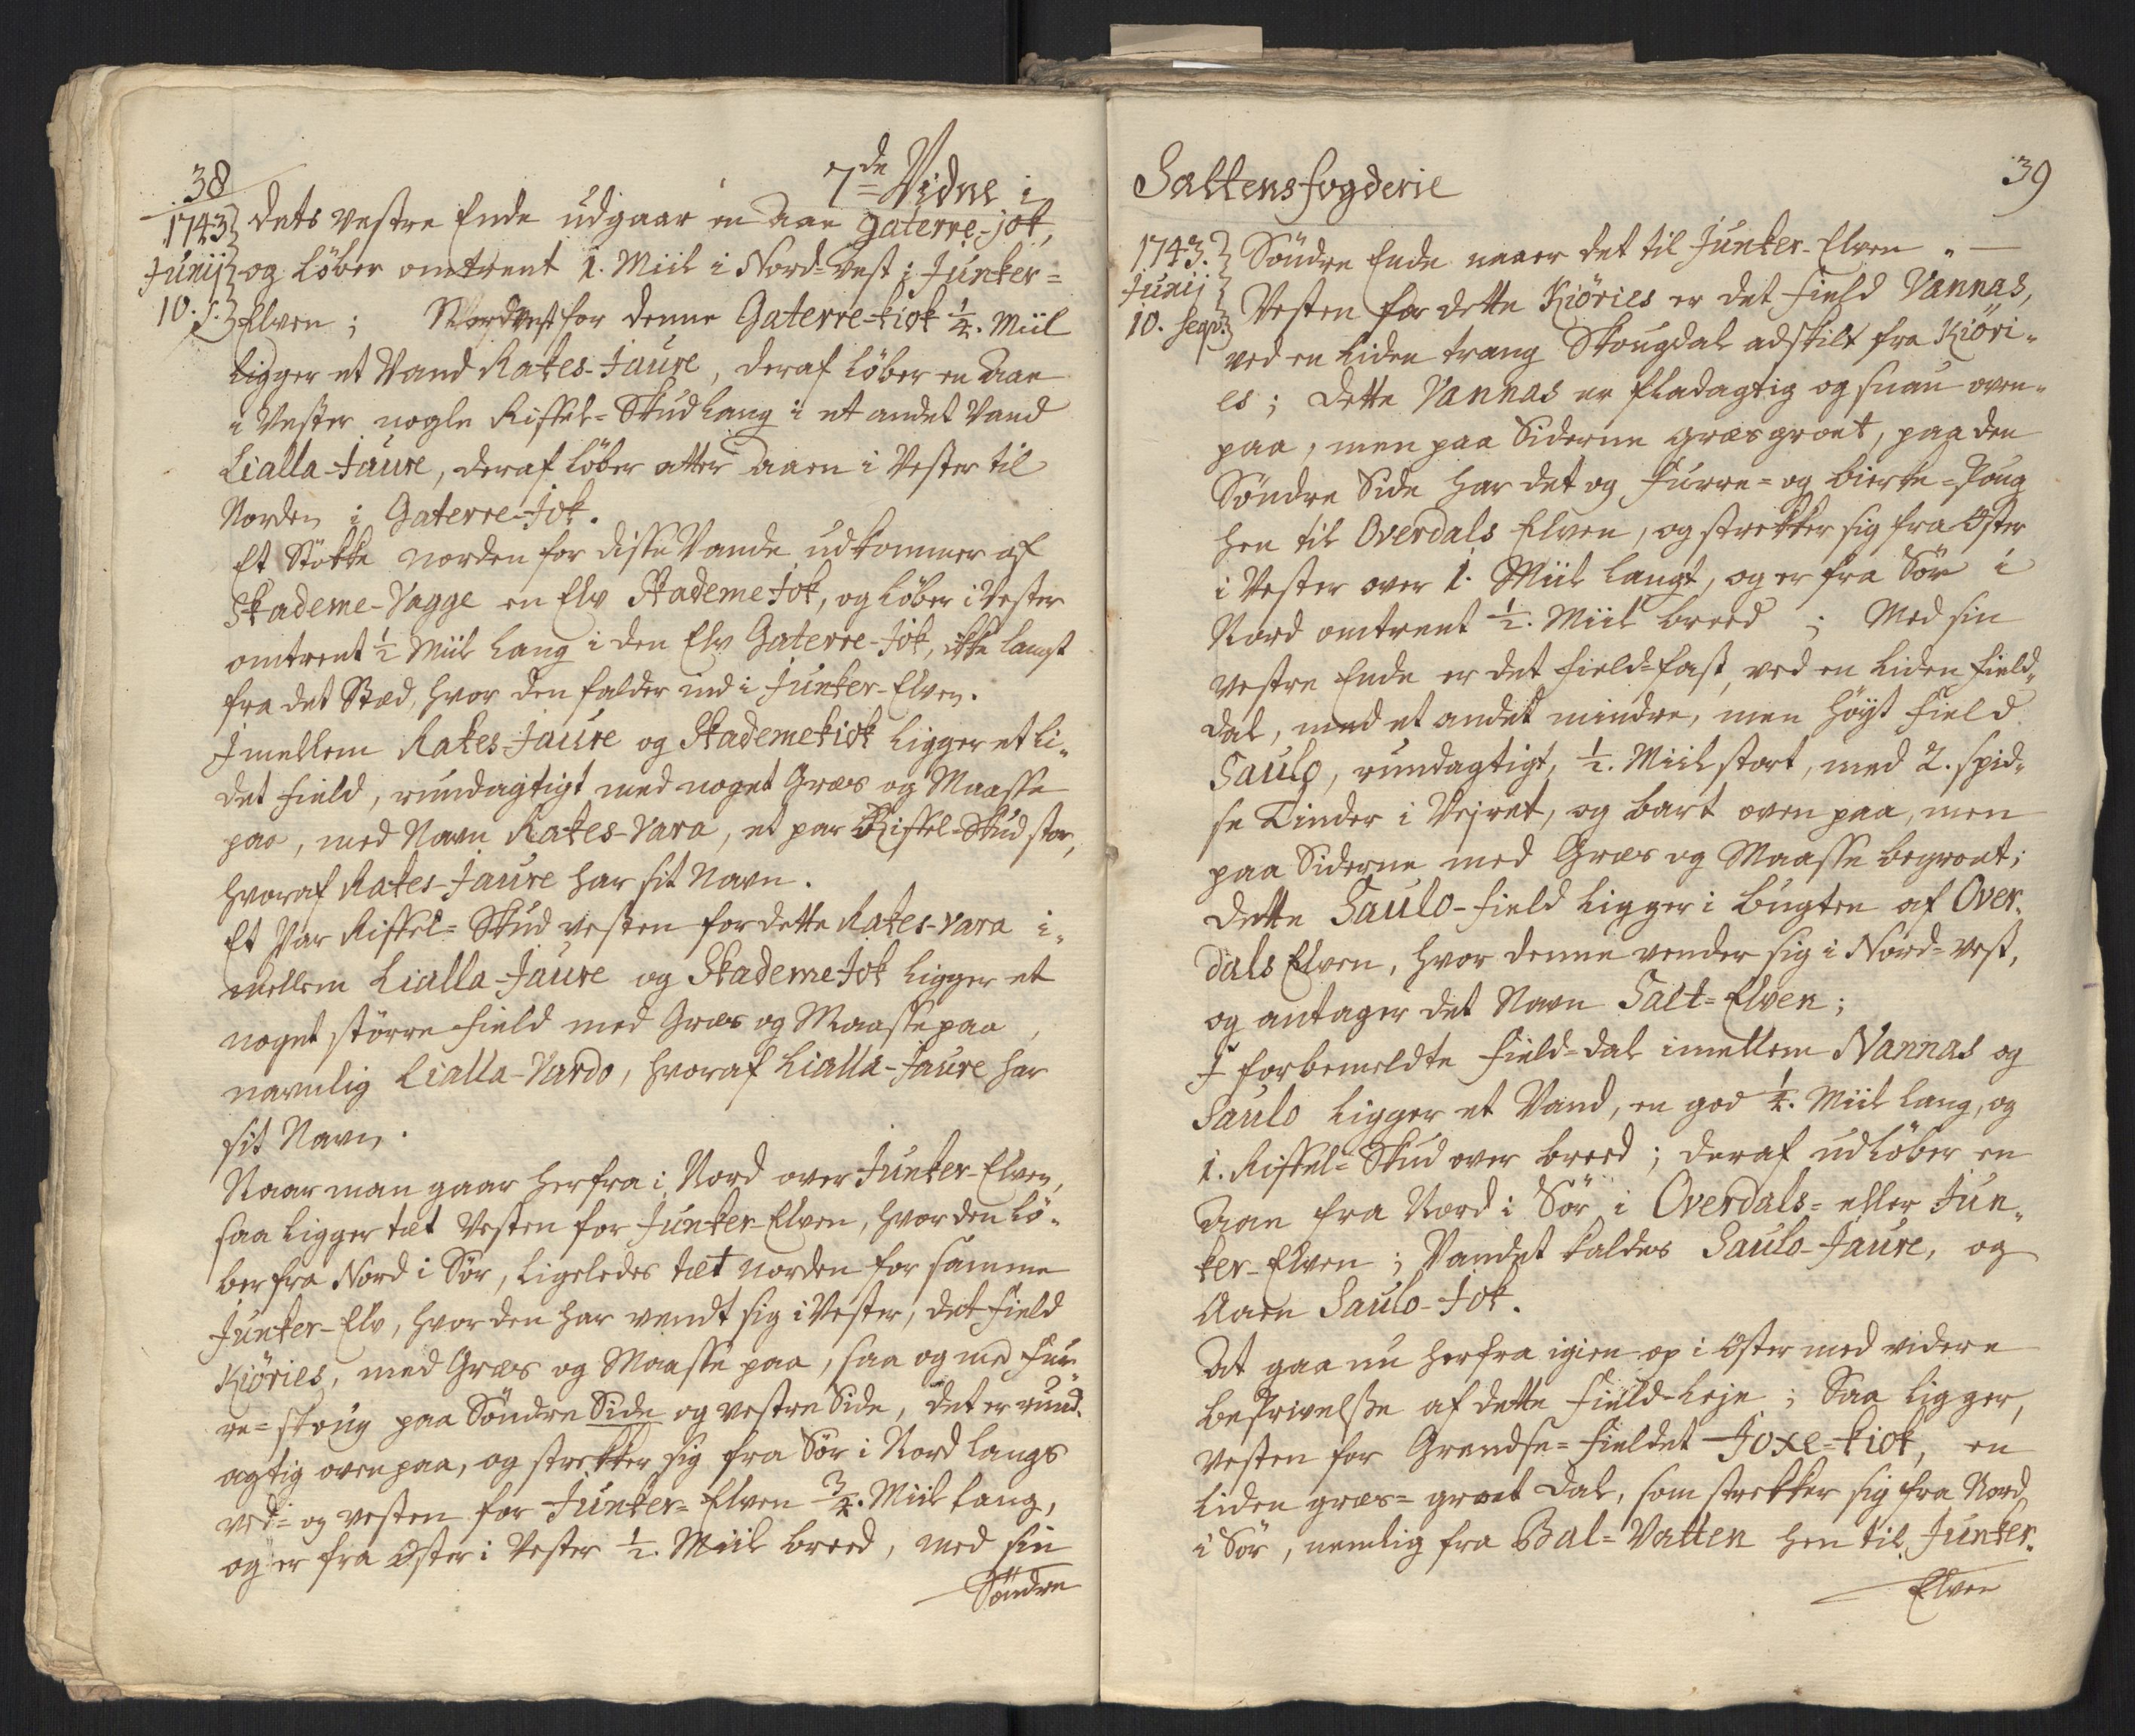 38
7de Vidne i
1743
Junij
10. s.
dets Vestre Ende udgaar en Aae Gaterre-jok,
og løber omtrent 1. Miil i Nord-Vest i Junker-
Elven; Nordvest for denne Gaterre-kiok ¼. Miil
ligger et Vand Rakes-Jaure, deraf løber en Aae
i Vester nogle Riffel-Skud lang i et andet Vand
Lialla-Jaure, deraf løber atter Aaen i Vester til
Norden i Gaterre-Jok.
Et Støkke Norden for disse Vande udkommer af
Skademe-Vagge en Elv Skademe Jok, og løber i Vester
omtrent ½ Miil lang i den Elv Gaterre-Jok, ikke langt
fra det Stæd, hvor den falder ind i Junker-Elven.
Imellem Rakes-Jaure og Skademekiok ligger et li-
det Field, rundagtigt med noget Græs og Maasse
paa, med Navn Rakes-Vara, et par Riffel-Skud stor,
hvoraf Rakes-Jaure har sit Navn.
Et Par Riffel-Skud Vesten for dette Rakes-Vara i-
mellem Lialla-Jaure og Skademe Jok ligger et
noget større Field med Græs og Maasse paa,
navnlig Lialla-Vardo, hvoraf Lialla-Jaure har
sit Navn.
Naar man gaar herfra i Nord over Junker-Elven,
saa ligger tæt Vesten for Junker-Elven, hvor den lø-
ber fra Nord i Sør, ligeledes tæt Norden for samme
Junker-Elv, hvor den har vendt sig i Vester, det Field
Kiöries, med Græs og Maasse paa, saa og med Fur-
re-skoug paa Søndre Side og Vestre Side, det er rund-
agtig oven paa, og strekker sig fra Sør i Nord langs
ved- og Vesten for Junker-Elven ¾. Miil lang,
og er fra Øster i Vester ½. Miil breed, med sin
Søndre
Saltens fogderie
39
1743.
Junij
10. seqv.
Søndre Ende naaer det til Junker-Elven.
Vesten for dette Kiöries er det Field Vannas,
ved en liden trang Skougdal adskilt fra Kiöri-
es; dette Vannas er fladagtig og snau oven-
paa, men paa Siderne græsgroet, paa den
Søndre Side har det og Furre- og Bierke-skoug
hen til Overdals Elven, og strekker sig fra Øster
i Vester over 1. Miil langt, og er fra Sør i
Nord omtrent ½. Miil breed; Med sin
Vestre Ende er det Field-fast, ved en liden Field-
dal, med et andet mindre, men høyt Field
Saulo, rundagtigt, ½. Miil stort, med 2. spid-
se Tinder i Vejret, og bart oven paa, men
paa Siderne med Græs og Maasse begroet;
dette Saulo-Field ligger i Bugten af Over-
dals Elven, hvor denne vender sig i Nord-Vest,
og antager det Navn Salt-Elven;
I forbemeldte Field-dal imellem Vannas og
Saulo ligger et Vand, en god ¼. Miil lang, og
1. Riffel-Skud over breed; deraf udløber en
Aae fra Nord i Sør i Overdals- eller Jun-
ker-Elven; Vandet kaldes Saulo-Jaure, og
Aaen Saulo-Jok.
At gaa nu herfra igien op i Øster med videre
beskrivelse af dette Field-Leje; Saa ligger,
Vesten for Grendse-Fieldet Joxe-kiok, en
liden græs-groet dal, som strekker sig fra Nord
i Sør, nemlig fra Bal-Vatten hen til Junker-
Elven